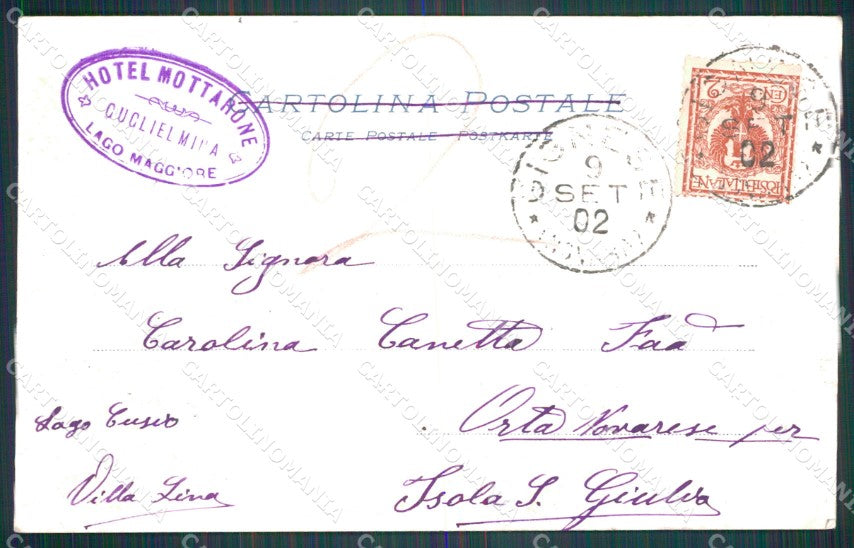 HOTEL MOTTARONE
GUGLIELMINA
LAGO MAGGIORE
CARTOLINA POSTALE
CARTE POSTALE POSTKARTE
GIGNESE
9
SET
02
9
SET
02
POSTE ITALIANE
CENT. 2
Alla Signora
Carolina Canetta Faà
Lago Cusio
Orta Novarese per
Villa Lina
Isola S. Giulio
CARTOLINOMANIA